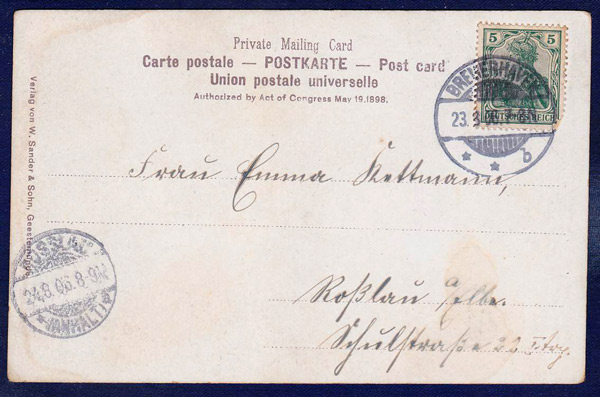 Private Mailing Card
Carte postale — POSTKARTE — Post card
Union postale universelle
Authorized by Act of Congress May 19. 1898.
5 5
DEUTSCHES REICH
BREMERHAVEN
23. 8.
* * b
Verlag von W. Sander & Sohn, Geestemünde.
Frau Emma Kettmann,
24.8.06.8-9V.
(ANHALT)
Roßlau Elbe.
Schulstraße 22 I